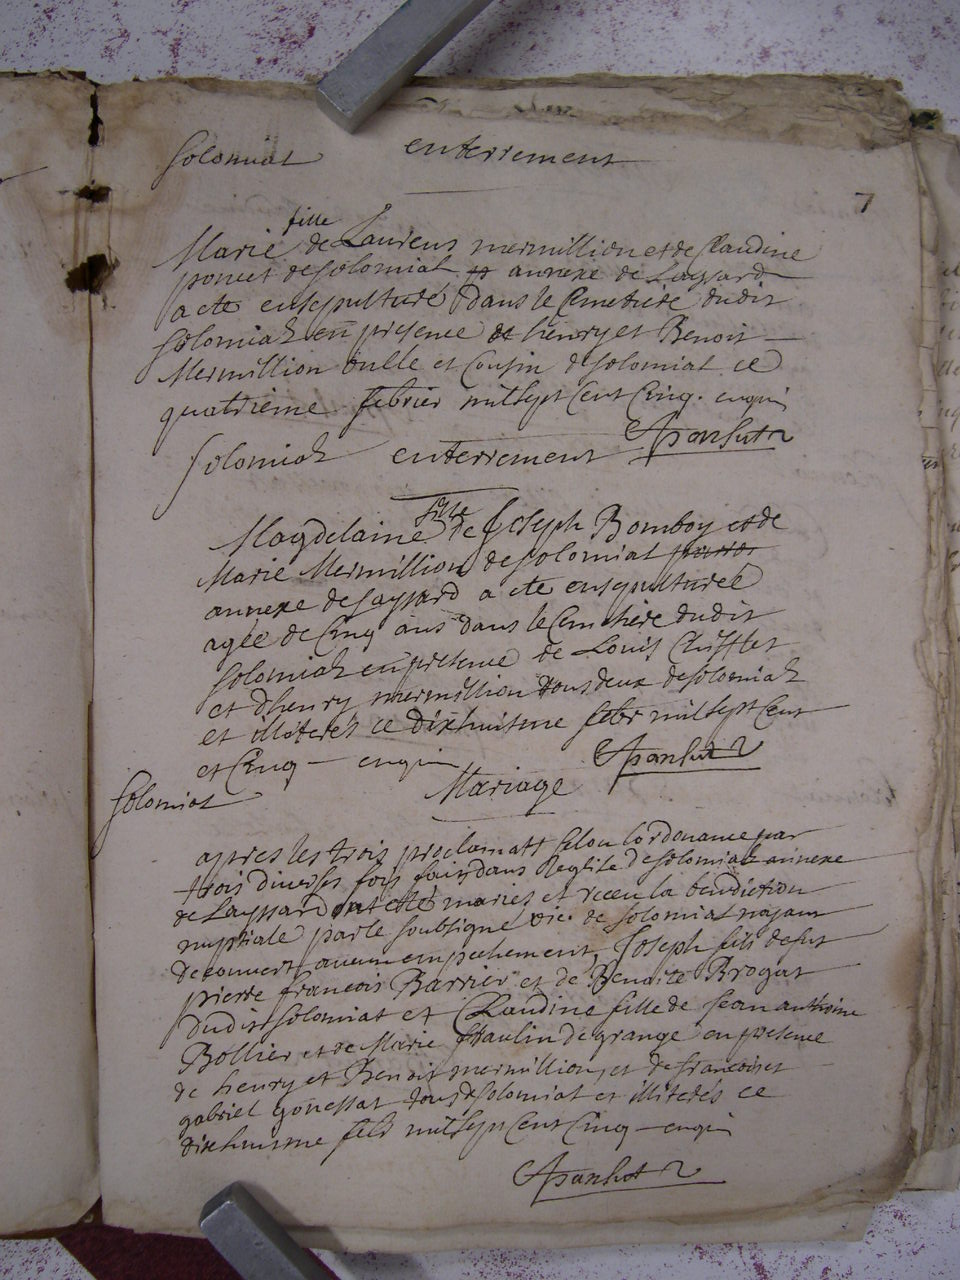 Solomiat enterrement
7
fille
Marie de Laurens mermillion et de Claudine
poncet de solomiat annexe de Layssard
a ete ensepulturé dans le Cimetiere dudit
solomiat en presence de henry et Benoit
Mermillion et Cousin de solomiat ce
quatrieme febvrier mil sept Cent Cinq
Solomiat enterrement
fille
Magdelaine de Joseph Bomboy et de
Marie Mermillion de solomiat
annexe de Layssard a ete ensepulturée
agée de Cinq ans dans le Cimetiere dudit
solomiat en presence de Louis
et d'henry mermillion tous deux de solomiat
et illiterés ce dixhuitme febr mil sept Cent
et Cinq
Solomiat Mariage
apres les trois proclamatt selon l'ordonance par
trois diverses fois dans l'eglise de solomiat annexe
de Layssard ont esté mariés et receu la benediction
nuptiale par le soubsigné vic. de solomiat n'ayant
decouvert aucun empechement, Joseph fils de fut
pierre francois Barrier et de Benoite Brogat
dudit solomiat et Claudine fille de Jean anthoine
Bollier et de Marie de grange en presence
de henry et Benoit mermillion, et de francois et
gabriel gonessat tous de solomiat et illiterés ce
mil sept Cent Cinq